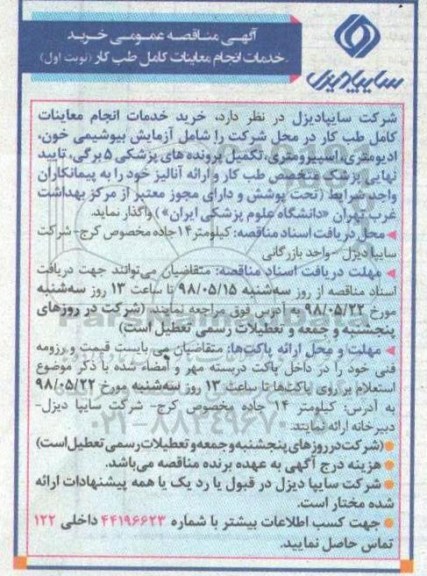 آگهی مناقصه عمومی خرید
خدمات انجام معاینات کامل طب کار (نوبت اول)
سایپادیزل
شرکت سایپادیزل در نظر دارد، خرید خدمات انجام معاینات
کامل طب کار در محل شرکت را شامل آزمایش بیوشیمی خون،
ادیومتری، اسپیرومتری، تکمیل پرونده های پزشکی ۵ برگی، تایید
نهایی پزشک متخصص طب کار و ارائه آنالیز خود را به پیمانکاران
واجد شرایط (تحت پوشش و دارای مجوز معتبر از مرکز بهداشت
غرب تهران «دانشگاه علوم پزشکی ایران») واگذار نماید.
محل دریافت اسناد مناقصه: کیلومتر ۱۴ جاده مخصوص کرج- شرکت
سایپا دیزل - واحد بازرگانی
مهلت دریافت اسناد مناقصه: متقاضیان می‌توانند جهت دریافت
اسناد مناقصه از روز سه‌شنبه ۹۸/۰۵/۱۵ تا ساعت ۱۳ روز سه‌شنبه
مورخ ۹۸/۰۵/۲۲ به آدرس فوق مراجعه نمایند. (شرکت در روزهای
پنجشنبه و جمعه و تعطیلات رسمی تعطیل است)
مهلت و محل ارائه پاکت‌ها: متقاضیان می بایست قیمت و رزومه
فنی خود را در داخل پاکت دربسته مهر و امضاء شده با ذکر موضوع
استعلام بر روی پاکت‌ها تا ساعت ۱۳ روز سه‌شنبه مورخ ۹۸/۰۵/۲۲
به آدرس: کیلومتر ۱۴ جاده مخصوص کرج- شرکت سایپا دیزل-
دبیرخانه ارائه نمایند.
۰۲۱-۸۸۳۴۹۶۷۰
(شرکت در روزهای پنجشنبه و جمعه و تعطیلات رسمی تعطیل است)
هزینه درج آگهی به عهده برنده مناقصه می‌باشد.
شرکت سایپا دیزل در قبول یا رد یک یا همه پیشنهادات ارائه
شده مختار است.
جهت کسب اطلاعات بیشتر با شماره ۴۴۱۹۶۶۲۳ داخلی ۱۲۲
تماس حاصل نمایید.